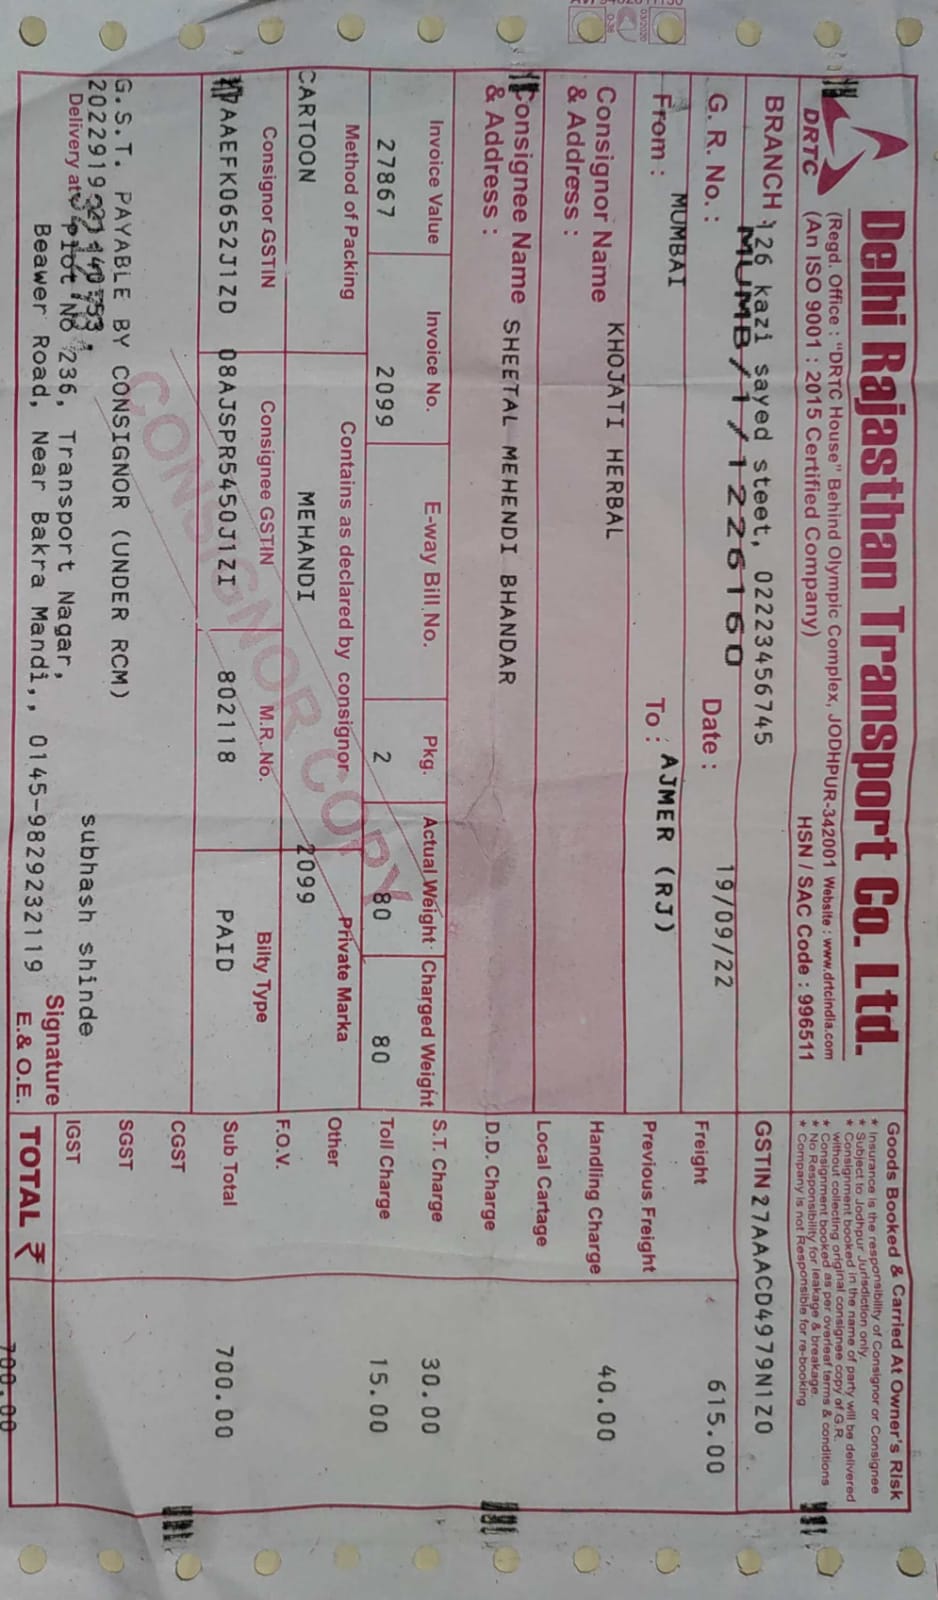 DRTC
Delhi Rajasthan Transport Co. Ltd.
(Regd. Office : "DRTC House" Behind Olympic Complex, JODHPUR-342001 Website : www.drtcindia.com
(An ISO 9001 : 2015 Certified Company)
HSN / SAC Code : 996511
Goods Booked & Carried At Owner's Risk
* Insurance is the responsibility of Consignor or Consignee
* Subject to Jodhpur Jurisdiction only.
* Consignment booked in the name of party will be delivered
without collecting original consignee copy of G.R.
* Consignment booked as per overleaf terms & conditions
* No Responsibility for leakage & breakage.
* Company is not Responsible for re-booking
BRANCH : 126 kazi sayed steet, 02223456745
GSTIN 27AAACD4979N1Z0
G. R. No. : MUMB/1/1226160 Date : 19/09/22
Freight 615.00
From : MUMBAI To : AJMER (RJ)
Previous Freight
Consignor Name KHOJATI HERBAL
& Address :
Handling Charge 40.00
Local Cartage
Consignee Name SHEETAL MEHENDI BHANDAR
& Address :
D.D. Charge
Invoice Value Invoice No. E-way Bill No. Pkg. Actual Weight Charged Weight
S.T. Charge 30.00
27867 2099 2 80 80
Toll Charge 15.00
Method of Packing Contains as declared by consignor Private Marka
Other
CARTOON MEHANDI 2099
F.O.V.
Consignor GSTIN Consignee GSTIN M.R. No. Bilty Type
27AAEFK0652J1ZD 08AJSPR5450J1ZI 802118 PAID
Sub Total 700.00
CONSIGNOR COPY
CGST
G.S.T. PAYABLE BY CONSIGNOR (UNDER RCM)
SGST
subhash shinde
Delivery at Plot No 236, Transport Nagar,
IGST
Beawer Road, Near Bakra Mandi,, 0145-9829232119
Signature
E.& O.E.
TOTAL ₹ 700.00